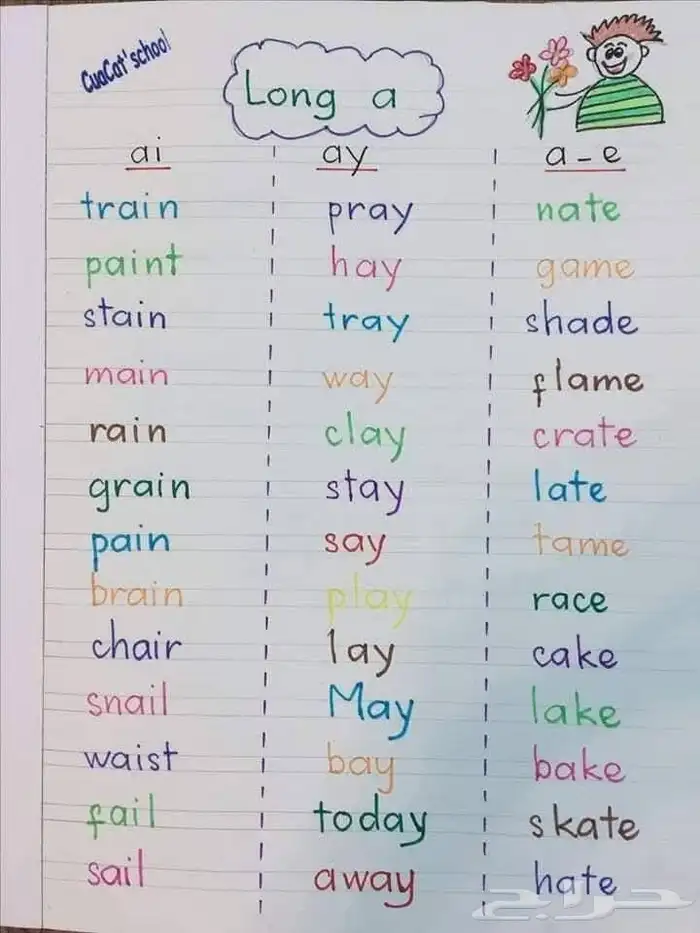 CuaCat'school
Long a
ai ay a-e
train pray nate
paint hay game
stain tray shade
main way flame
rain clay crate
grain stay late
pain say tame
brain play race
chair lay cake
snail May lake
waist bay bake
fail today skate
sail away hate
حراج